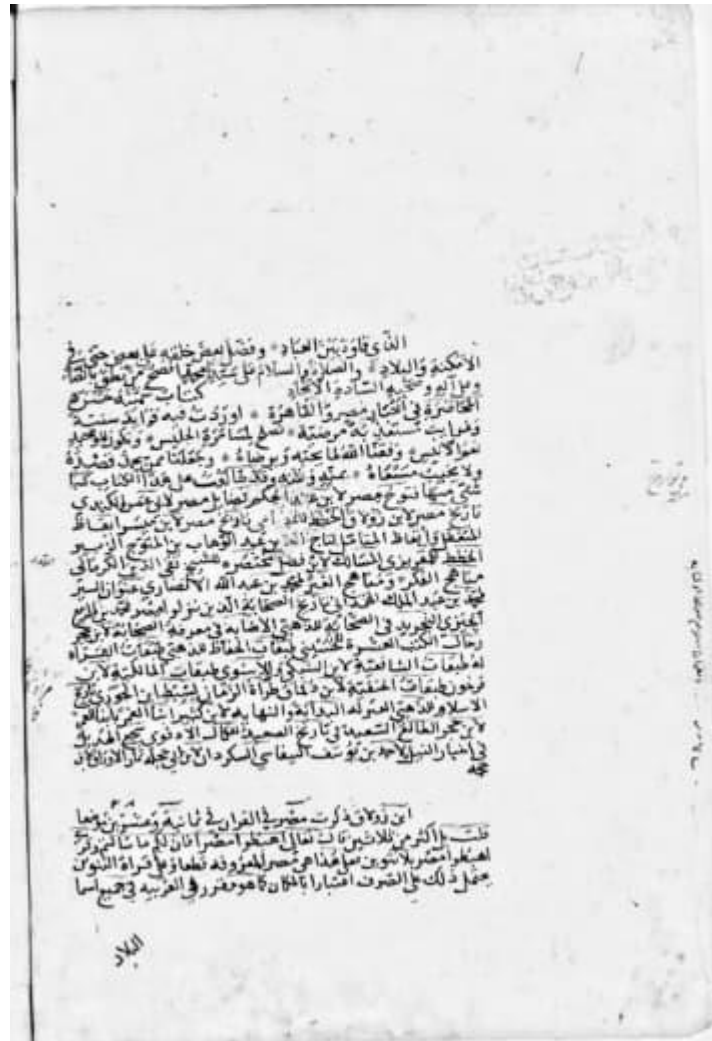 الذي فاوت بين العباد * وفضل بعض خلقه على بعض حتى في
الأمكنة والبلاد * والصلاة والسلام على سيدنا محمد أفصح من نطق بالضاد
وعلى آله وصحبه السادة الأمجاد كتاب سميته حسن
المحاضرة في أخبار مصر والقاهرة * أوردت فيه فوائد سنية
وغرائب مستعذبة مرضية * تصلح لمسامرة الجليس * وتكون للوحيد
نعم الأنيس * وفقنا الله لما يحبه ويرضاه * وجعلنا ممن يحمد قصده
ولا يخيب مسعاه * بمنه وقد طالعت على هذا الكتاب كتبا
شتى منها فتوح مصر لابن عبد الحكم فضايل مصر لابي عمر الكندي
تاريخ مصر لابن زولاق الخطط تاريخ مصر لابن ميسر ايقاظ
المتغفل واتعاظ المتامل لتاج الدين بن عبد الوهاب بن المتوج الزبيري
الخطط للمقريزي المسالك لابن فضل الله مختصره للشيخ تقي الدين الكرماني
مباهج الفكر ومناهج العبر لمحمد بن عبد الله الانصاري عنوان السير
لمحمد بن عبد الملك تاريخ الصحابة الذين نزلوا مصر لمحمد بن الربيع
الجيزي التجريد في الصحابة للذهبي الاصابة في معرفة الصحابة لابن حجر
رجال الكتب العشرة للحسيني طبقات الحفاظ للذهبي طبقات القراء
له طبقات الشافعية لابن السبكي وللاسنوي طبقات المالكية لابن
فرحون طبقات الحنفية لابن دقماق مراة الزمان لسبط ابن الجوزي تاريخ
الاسلام للذهبي العبر له البداية والنهاية لابن كثير انباء الغمر بأنباء العمر
لابن حجر الطالع السعيد في تاريخ الصعيد للكمال الادفوي سجع الهديل
في اخبار النيل لاحمد بن يوسف التيفاشي السكردان لابن ابي حجلة ثمار الاوراق لابن
حجة
ابن زولاق ذكرت مصر في القران في ثمانية وعشرين موضعا
قلت بل اكثر من ثلاثين قال تعالى اهبطوا مصرا فان لكم ما سالتم وقرئ
اهبطوا مصر بلا تنوين فعلى هذا هي مصر المعروفة قطعا وعلى قراة التنوين
يحمل ذلك على الصرف اعتبارا بالمكان كما هو مقرر في العربية في جميع اسما
البلاد